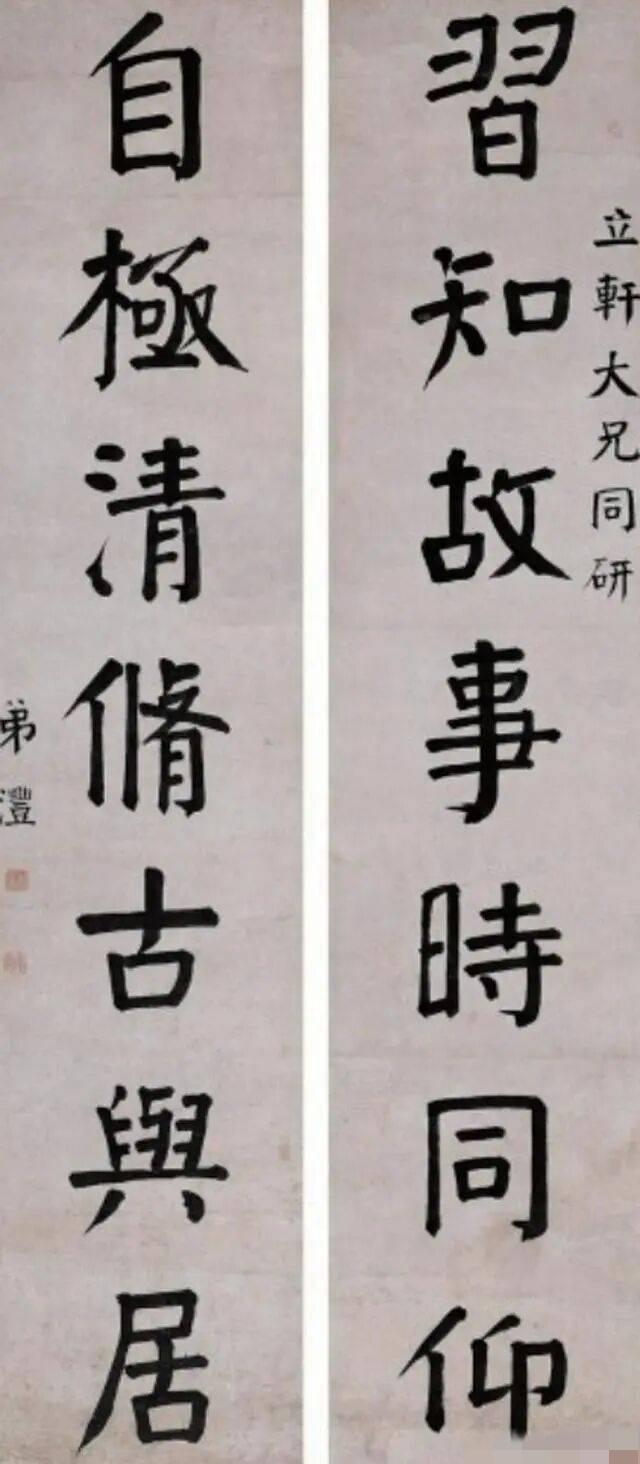 立軒大兄同研
習知故事時同仰
自極清脩古與居
弟澧